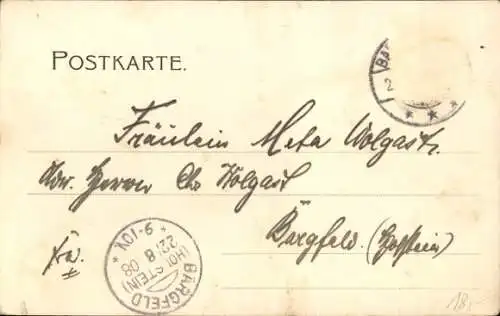 POSTKARTE.
BA
2
Fräulein Meta Wolgast.
Adr. Herrn Chr Wolgast
Bargfeld. (Holstein)
fr.
* 9-10V. *
22.8 08
(HOLSTEIN)
BARGFELD
18,-